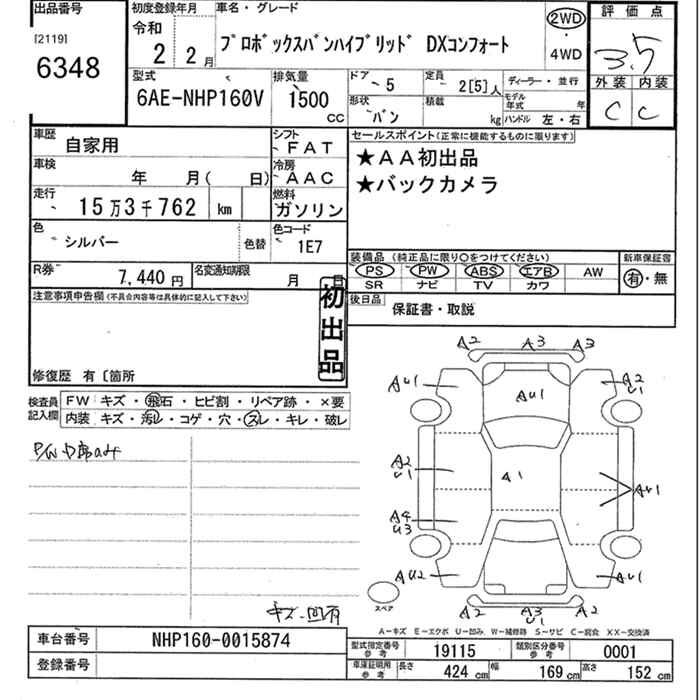 出品番号 初度登録年月 車名・グレード 評価点
[2119] 令和
6348 2 2月 プロボックスバンハイブリッド DXコンフォート 2WD・4WD 3.5
型式 排気量 ドア 定員 ディーラー・並行 外装 内装
6AE-NHP160V 1500 cc 5 2[5]人 モデル年式 年 C C
形状 バン 積載 kg ハンドル 左・右
車歴 自家用 シフト FAT セールスポイント(正常に機能するものに限ります)
車検 年 月( 日) 冷房 AAC ★AA初出品
走行 15万3千762 km 燃料 ガソリン ★バックカメラ
色 シルバー 色替 色コード 1E7
装備品 (純正品に限り○をつけてください) 新車保証書
PS PW ABS エアB AW 有・無
SR ナビ TV カワ
R券 7,440円 名変通知期限 月 日
後日品 保証書・取説
注意事項申告欄(不具合内容等は具体的に記入して下さい)
初出品
修復歴 有〔箇所
検査員記入欄 FW キズ・飛石・ヒビ割・リペア跡・×要
内装 キズ・汚レ・コゲ・穴・スレ・キレ・破レ
A2 A3 A3
AU1 AU1 A2 U1
A2 U1 A1 AU1
A4 U3
AU2 AU1
スペア
A2 A3 U1 A2
キズ・凹有
A-キズ E-エクボ U-凹み W-補修跡 S-サビ C-腐食 XX-交換済
車台番号 NHP160-0015874 型式指定番号 参考 19115 類別区分番号 参考 0001
登録番号 車庫証明用 参考 長さ 424 cm 幅 169 cm 高さ 152 cm